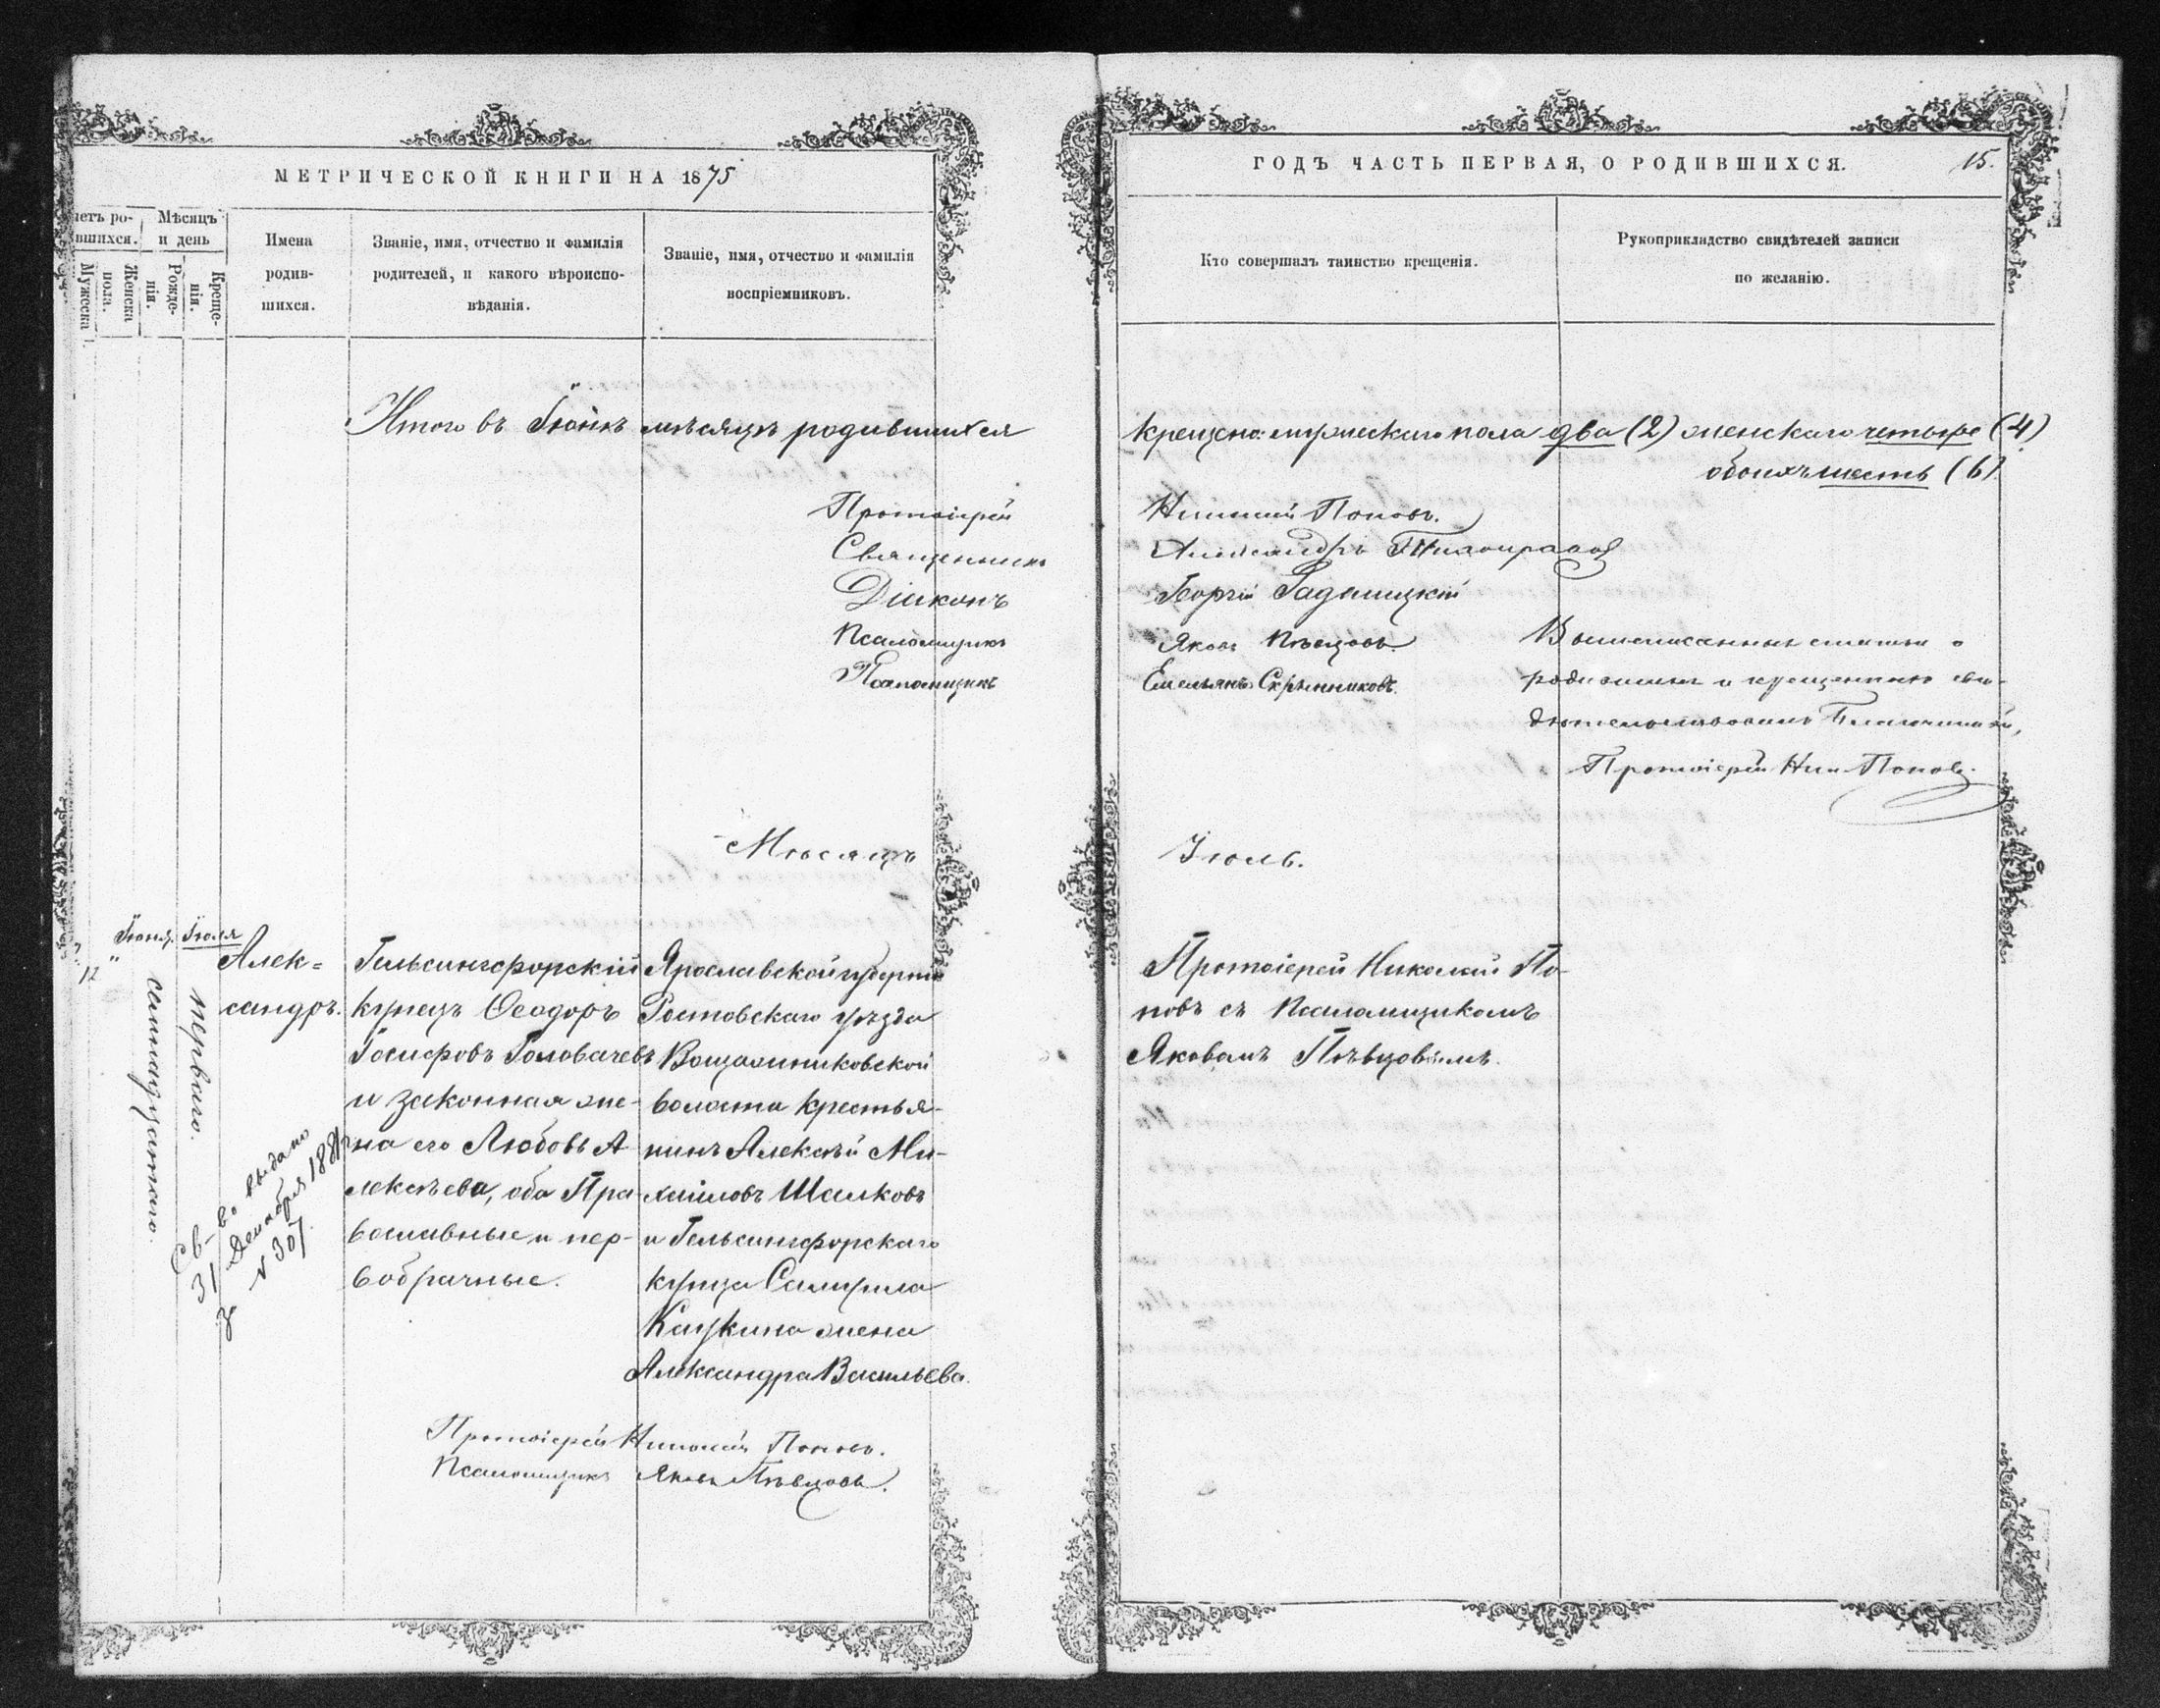 МЕТРИЧЕСКОЙ КНИГИ НА 1875
четъ ро-
вшихся.
Мужска
пола.
Женска
Мѣсяцъ
и день
Рожде-
нія.
Креще-
нія.
Имена
родив-
шихся.
Званіе, имя, отчество и фамилія
родителей, и какого вѣроиспо-
вѣданія.
Званіе, имя, отчество и фамилія
воспріемниковъ.
Итого въ Іюнѣ мѣсяцѣ родившихся
Протоіерей
Священникъ
Діаконъ
Псаломщикъ
Псаломщикъ
Мѣсяцъ
Іюня. Іюля
12 "
семнадцатаго.
перваго.
Алек=
сандръ.
Св-во выдано
31 Декабря
за № 307.
Гельсингфорскій
купецъ Ѳеодоръ
Іосифовъ Головачевъ
и законная же-
на его Любовь А-
лексѣева, оба Пра-
вославные и пер-
вобрачные.
Ярославской губерніи
Ростовскаго уѣзда
Вощажниковской
волости крестья-
нинъ Алексѣй Ми-
хаиловъ Шалковъ
и Гельсингфорскаго
купца Самуила
Кашкина жена
Александра Васильева.
Протоіерей Николай Поповъ.
Псаломщикъ Яковъ Пѣвцовъ.
ГОДЪ ЧАСТЬ ПЕРВАЯ, О РОДИВШИХСЯ.
15.
Кто совершалъ таинство крещенія.
Рукоприкладство свидѣтелей записи
по желанію.
крещено: мужескаго пола два (2) женскаго четыре (4)
обоихъ шесть (6).
Николай Поповъ.
Александръ
Георгій
Яковъ Пѣвцовъ.
Емельянъ Скрынниковъ.
Вышеписанныя статьи о
родившихся и крещенныхъ сви-
дѣтельствовалъ Благочинный,
Протоіерей Ник Поповъ.
Іюль.
Протоіерей Николай По-
повъ съ Псаломщикомъ
Яковомъ Пѣвцовымъ.